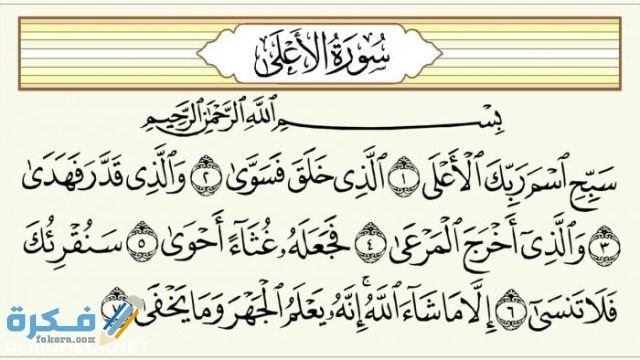 سُورَةُ الأَعْلَى
بِسْمِ اللَّهِ الرَّحْمَٰنِ الرَّحِيمِ
سَبِّحِ اسْمَ رَبِّكَ الْأَعْلَى ١ الَّذِي خَلَقَ فَسَوَّىٰ ٢ وَالَّذِي قَدَّرَ فَهَدَىٰ
٣ وَالَّذِي أَخْرَجَ الْمَرْعَىٰ ٤ فَجَعَلَهُ غُثَاءً أَحْوَىٰ ٥ سَنُقْرِئُكَ
فَلَا تَنسَىٰ ٦ إِلَّا مَا شَاءَ اللَّهُ ۚ إِنَّهُ يَعْلَمُ الْجَهْرَ وَمَا يَخْفَىٰ ٧
فكرة
fokera.com